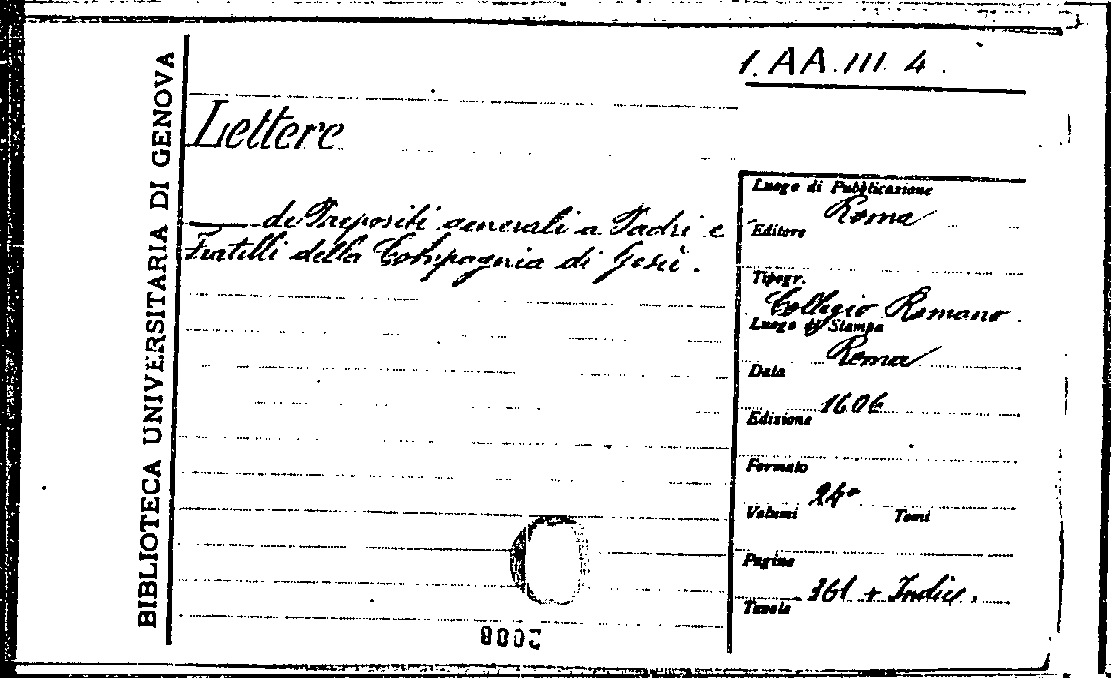 1.AA.III.4.
BIBLIOTECA UNIVERSITARIA DI GENOVA
Lettere
—— de Prepositi generali a Padri e
Fratelli della Compagnia di Gesù.
Luogo di Pubblicazione
Roma
Editore
Tipogr.
Collegio Romano.
Luogo di Stampa
Roma
Data
1606
Edizione
Formato
24°
Volumi Tomi
Pagine
361 + Indice.
Tavole
2008